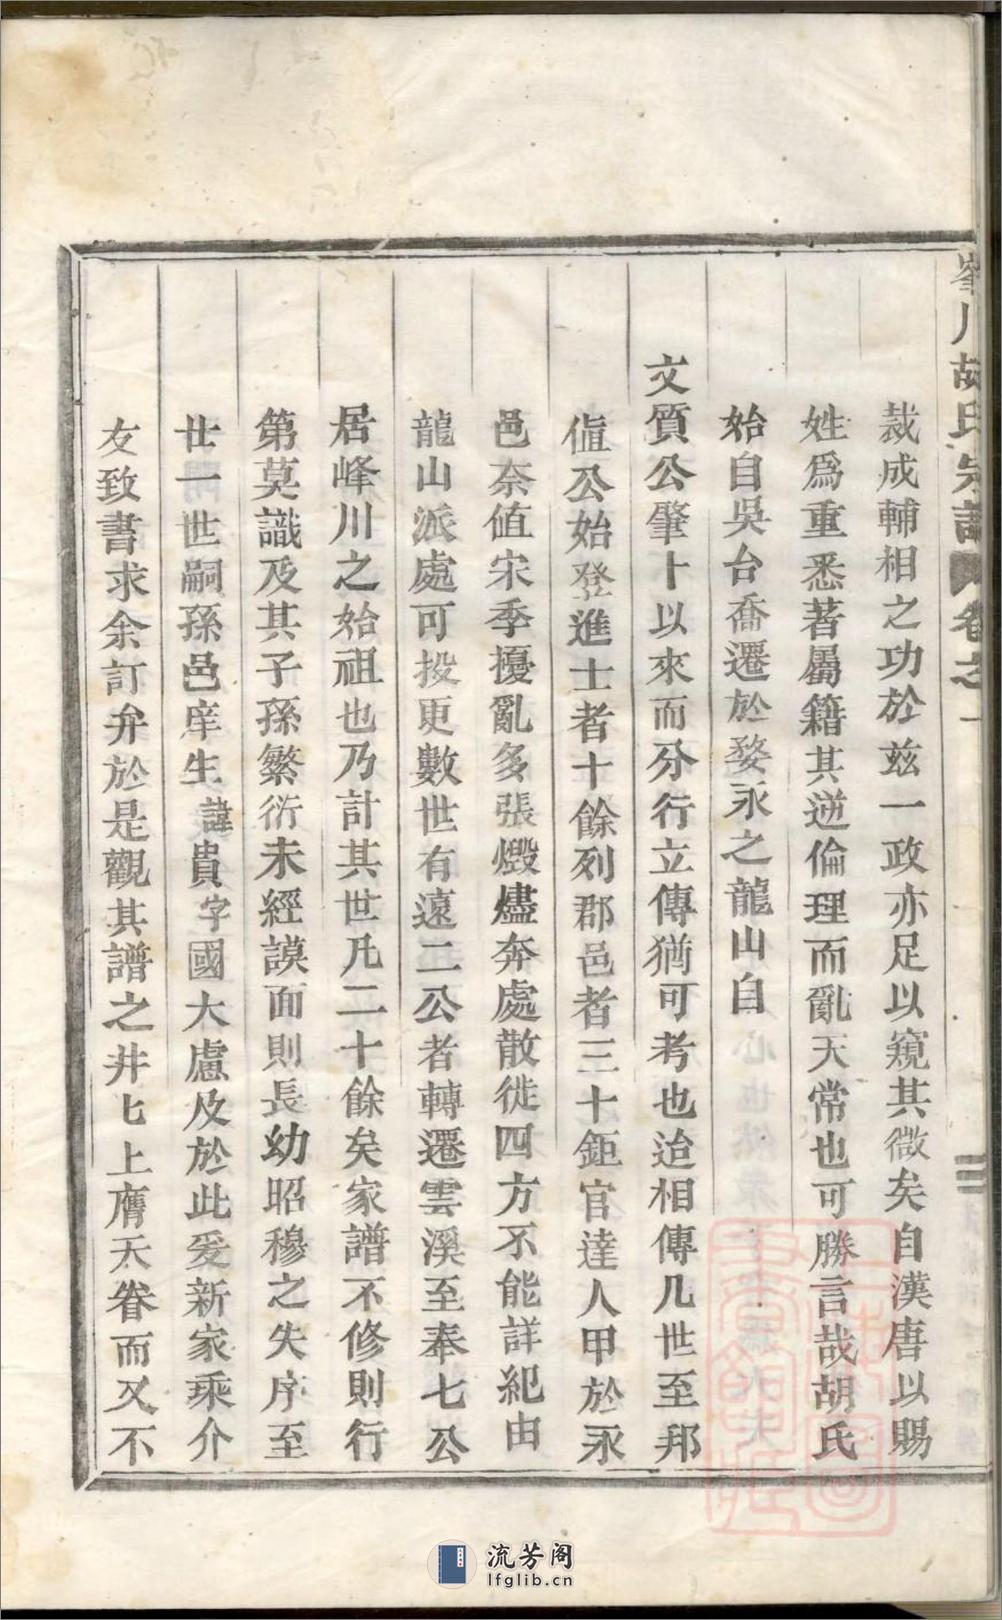 峯川胡氏宗譜 卷之一
裁成輔相之功於兹一政亦足以窺其微矣自漢唐以賜
姓爲重悉著屬籍其逆倫理而亂天常也可勝言哉胡氏
始自吳台喬遷於婺永之龍山自
文質公肇卜以來而分行立傳猶可考也迨相傳几世至邦
值公始登進士者十餘列郡邑者三十鉅官達人甲於永
邑奈值宋季擾亂多張燬燼奔處散徙四方不能詳紀由
龍山派處可投更數世有遠二公者轉遷雲溪至奉七公
居峰川之始祖也乃計其世凡二十餘矣家譜不修則行
第莫識及其子孫繁衍未經謨面則長幼昭穆之失序至
廿一世嗣孫邑庠生諱貴字國大慮及於此爰新家乘介
友致書求余訂弁於是觀其譜之井七上膺天眷而又不
流芳阁
lfglib.cn